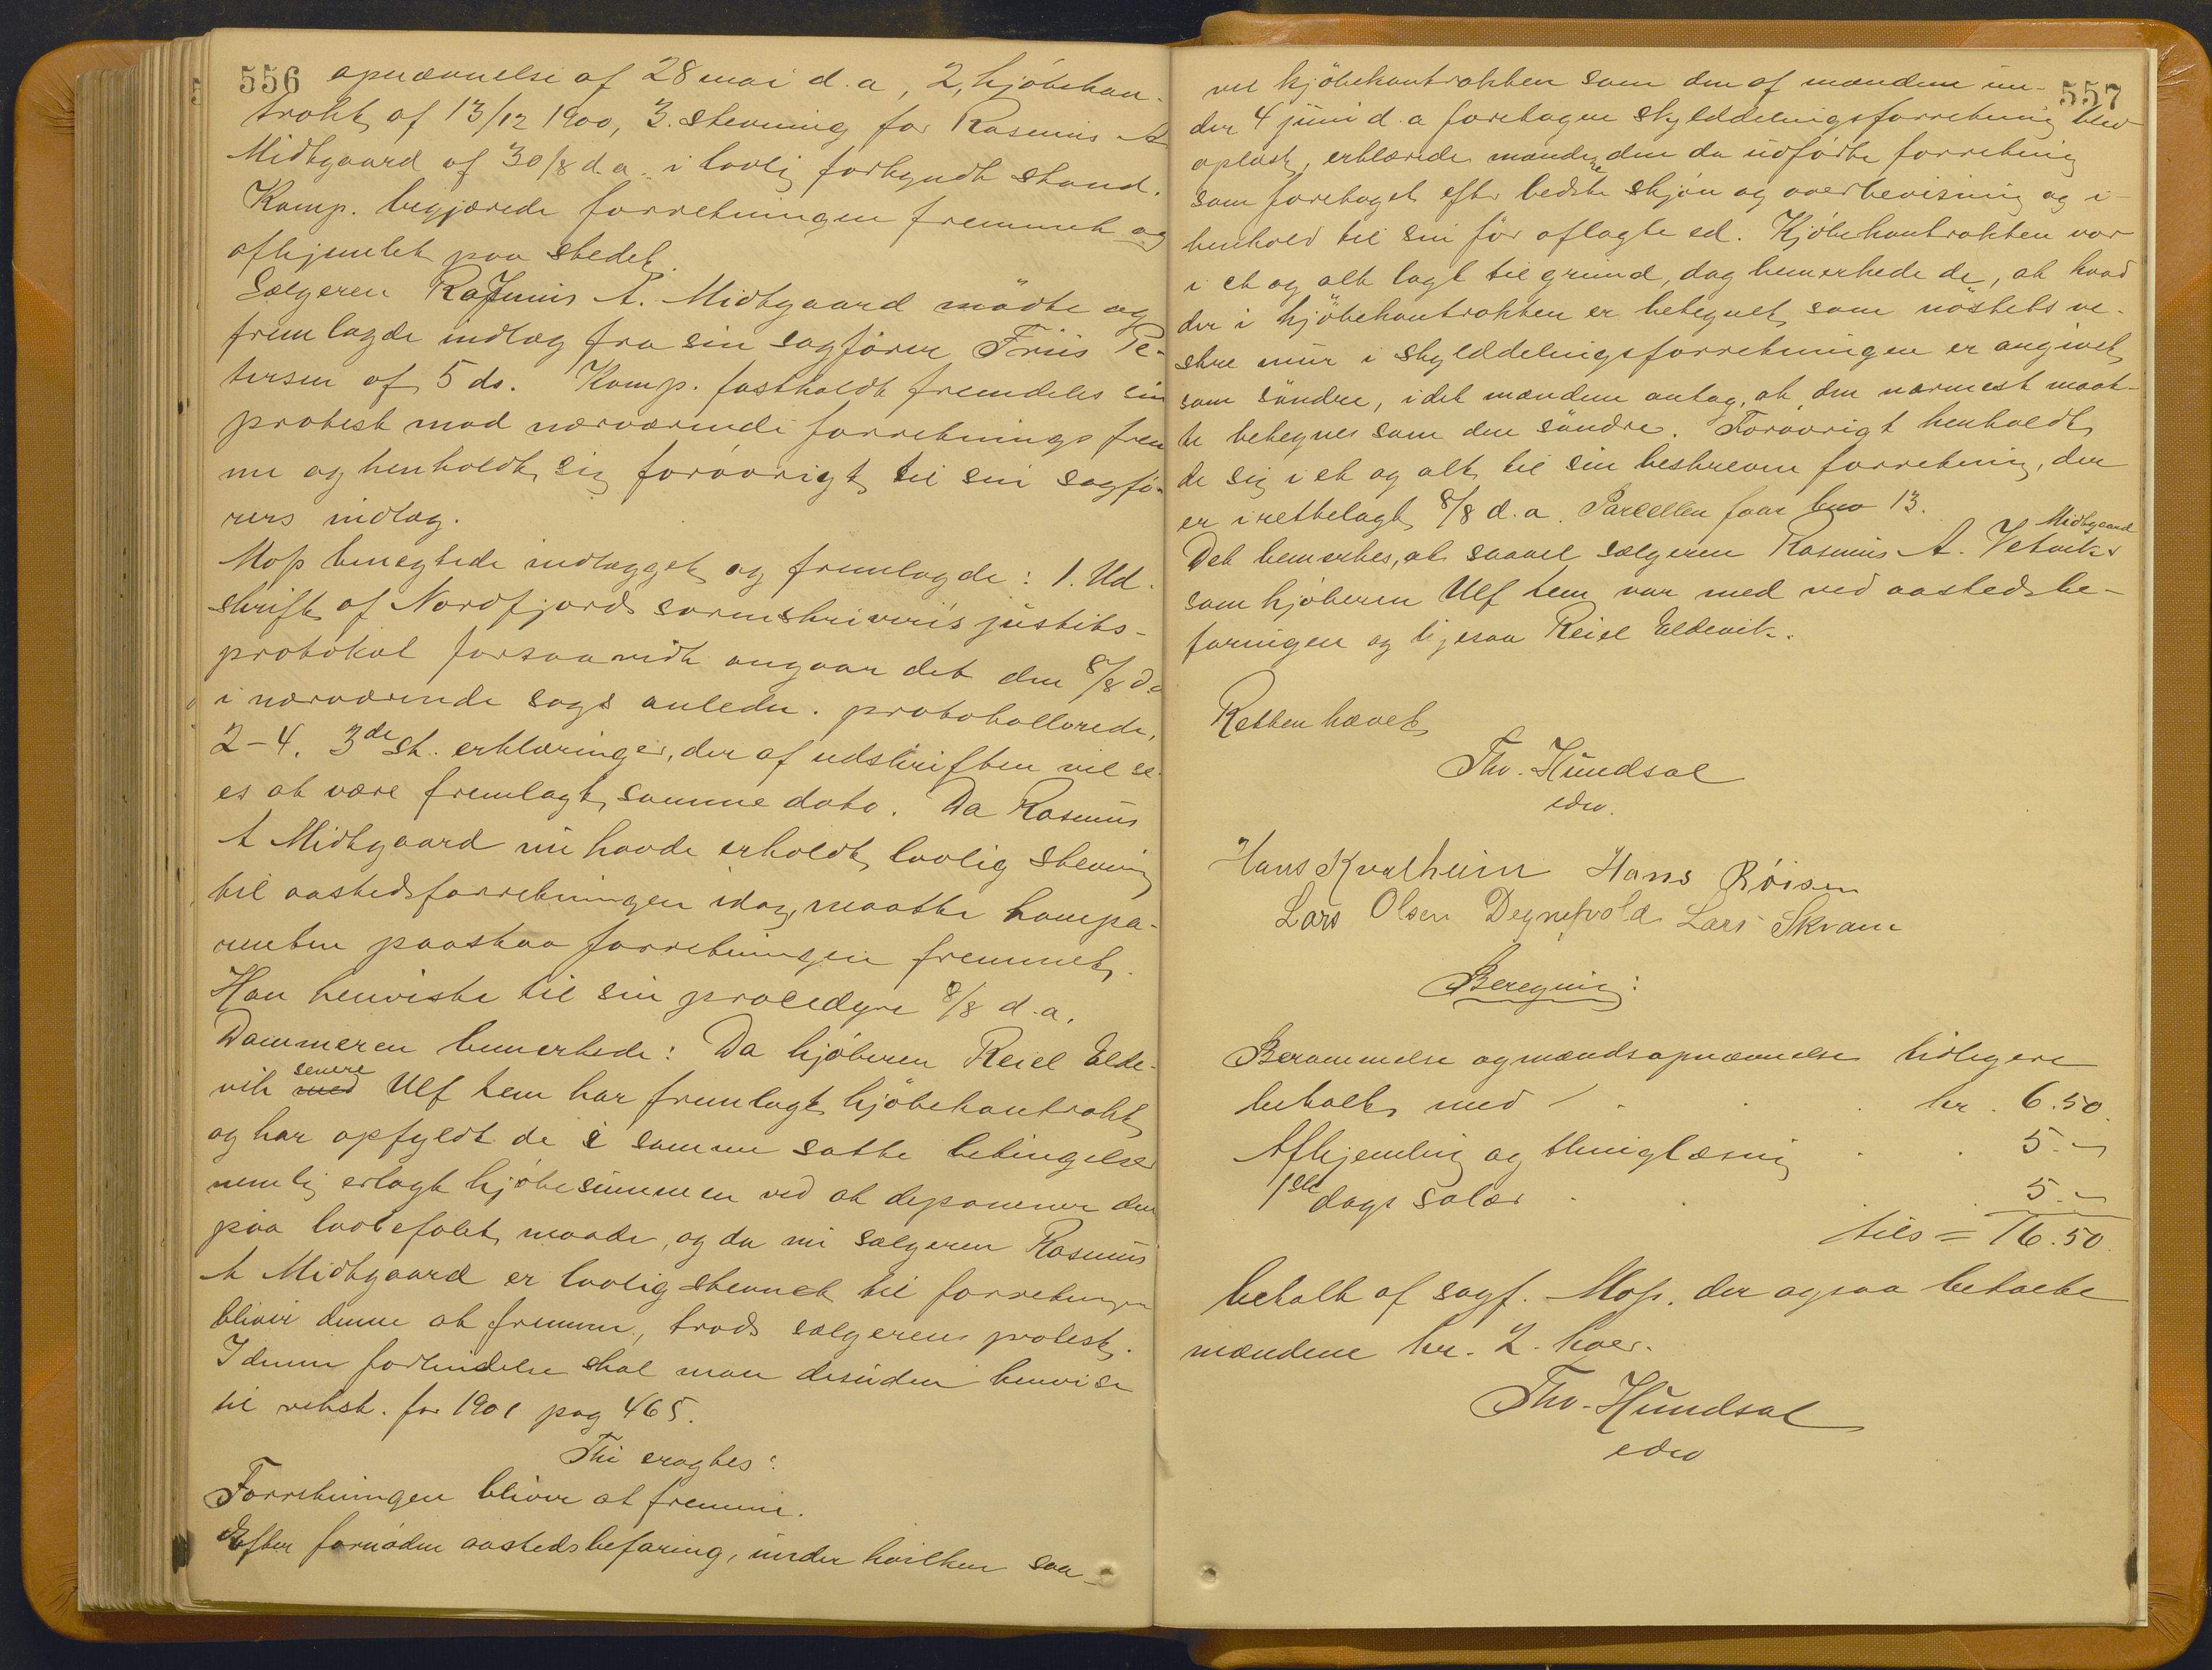 556 opnævnelse af 28 mai d.a, 2, kjöbekon-
trakt af 13/12 1900, 3. stevning for Rasmus A
Midtgaard af 30/8 d.a. i lovlig forkyndt stand.
Komp. begjærede forretningen fremmet og
afhjemlet paa stedet.
Sælgeren Rasmus A. Midtgaard mödte og
fremlagde indlæg fra sin sagförer Friis Pe-
tersen af 5 ds. Komp. fastholdt fremdeles sin
protest mod nærværende forretnings frem
me og henholdt sig forövrigt til sin sagfö-
rers indlæg.
Moss benegtede indlægget og fremlagde: 1. Ud-
skrift af Nordfjords sorenskriveris justits-
protokol forsaavidt angaar det den 8/8 da
i nærværende sags anledn. protokollerede,
2-4. 3de st. erklæringer, der af udskriften vil se-
es at være fremlagt samme dato. Da Rasmus
A Midtgaard nu havde erholdt lovlig stevning
til aastedsforretningen idag, maatte kompa-
renten paastaa forretningen fremmet.
Han henviste til sin procedyre 8/8 d.a.
Dommeren bemerkede: Da kjöberen Reiel Elde-
senere
vik med Ulf tem har fremlagt kjöbekontrakt
og har opfyldt de i samme satte betingelser
nemlig erlagt kjöbesummen ved at deponere den
paa lovbefalet maade, og da nu sælgeren Rasmus
A Midtgaard er lovlig stevnet til forretningen
bliver denne at fremme, trods sælgerens protest.
I denne forbindelse skal man desuden henvise
til retst. for 1901 pag 465.
Thi eragtes:
Forretningen bliver at fremme.
Efter fornöden aastedsbefaring, under hvilken saa-
557
vel kjöbekontrakten som den af mændene un-
der 4 juni d.a foretagne skylddelingsforretning blev
oplæst, erklærede mændene den da udförte forretning
som foretaget efter bedste skjön og overbevisning og i-
henhold til sin för aflagte ed. Kjöbekontrakten var
i et og alt lagt til grund, dog bemerkede de, at hvad
der i kjöbekontrakten er betegnet som nöstets ve-
stre mur i skylddelingsforretningen er angivet
som söndre, idet mændene antog, at den nærmest maat-
te betegnes som den söndre. Forövrigt henholdt
de sig i et og alt til sin beskrevne forretning, der
er irettelagt 8/8 d.a. Parcellen faar bno 13.
Midtgaard
Det bemerkes, at saavel sælgeren Rasmus A. Vetvik
som kjöberen Ulf tem var med ved aastedsbe-
faringen og ligesaa Reiel Eldevik.
Retten hævet
Thv. Hundsal
edsv.
Hans Kvalheim Hans Röisen
Lars Olsen Degnepold Lars Skram
Beregning:
Berammelse og mændsopnævnelse tidligere
betalt med kr. 6.50.
Afhjemling og thinglæsning 5.-
1ste dags salær 5.-
tils = 16.50.
betalt af sagf. Moss. der ogsaa betalte
mændene kr. 2. hver.
Thv. Hundsal
edsv